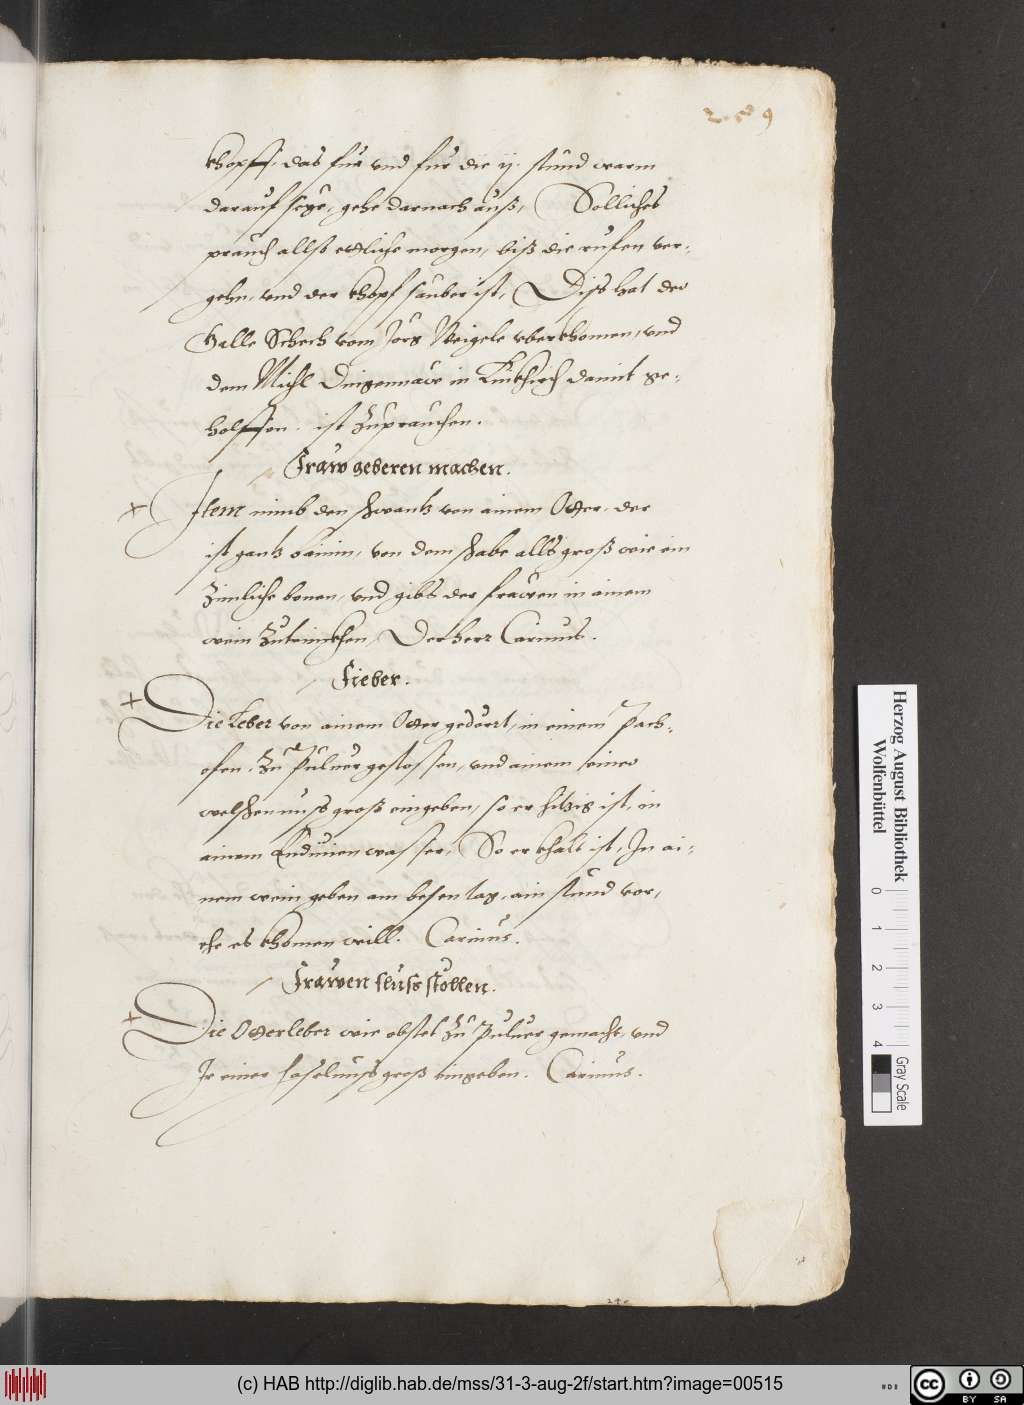 259
khopff, das für vnd für die ij. stund warm
darauf lige, gehe darnach auß, Solliches
prauch allso etliche morgen, biß die rufen ver-
gehn, vnd der khopf sauber ist, Diss hat der
Galle Schech vom Jörg Weigele vberkhomen, vnd
dem Michl in Kirchperg damit ge-
holffen. ist zuprauchen.
Fraw geberen machen.
+ Item nimb den schwantz von ainem Otter, der
ist gantz bainin, von dem schabe alls groß wie ein
zimliche bonen, vnd gibs der frawen in ainem
wein zutrinckhen, Der herr Carinus.
Fieber.
+ Die leber von ainem Otter gedörrt, in einem pach-
ofen, zu Puluer gestossen, vnd ainem einer
welschen nuss groß eingeben, so er hitzig ist, in
ainem Endiuien wasser, So er khalt ist, In ai-
nem wein geben am besen tag, ain stund vor,
ehe es khomen will. Carinus.
Frawen fluss stöllen.
+ Die Otterleber wie obstet zu Puluer gemacht, vnd
Ir einer haselnuss groß eingeben. Carinus.
Herzog August Bibliothek
Wolfenbüttel
0 1 2 3 4
Gray Scale
(c) HAB http://diglib.hab.de/mss/31-3-aug-2f/start.htm?image=00515
cc BY SA